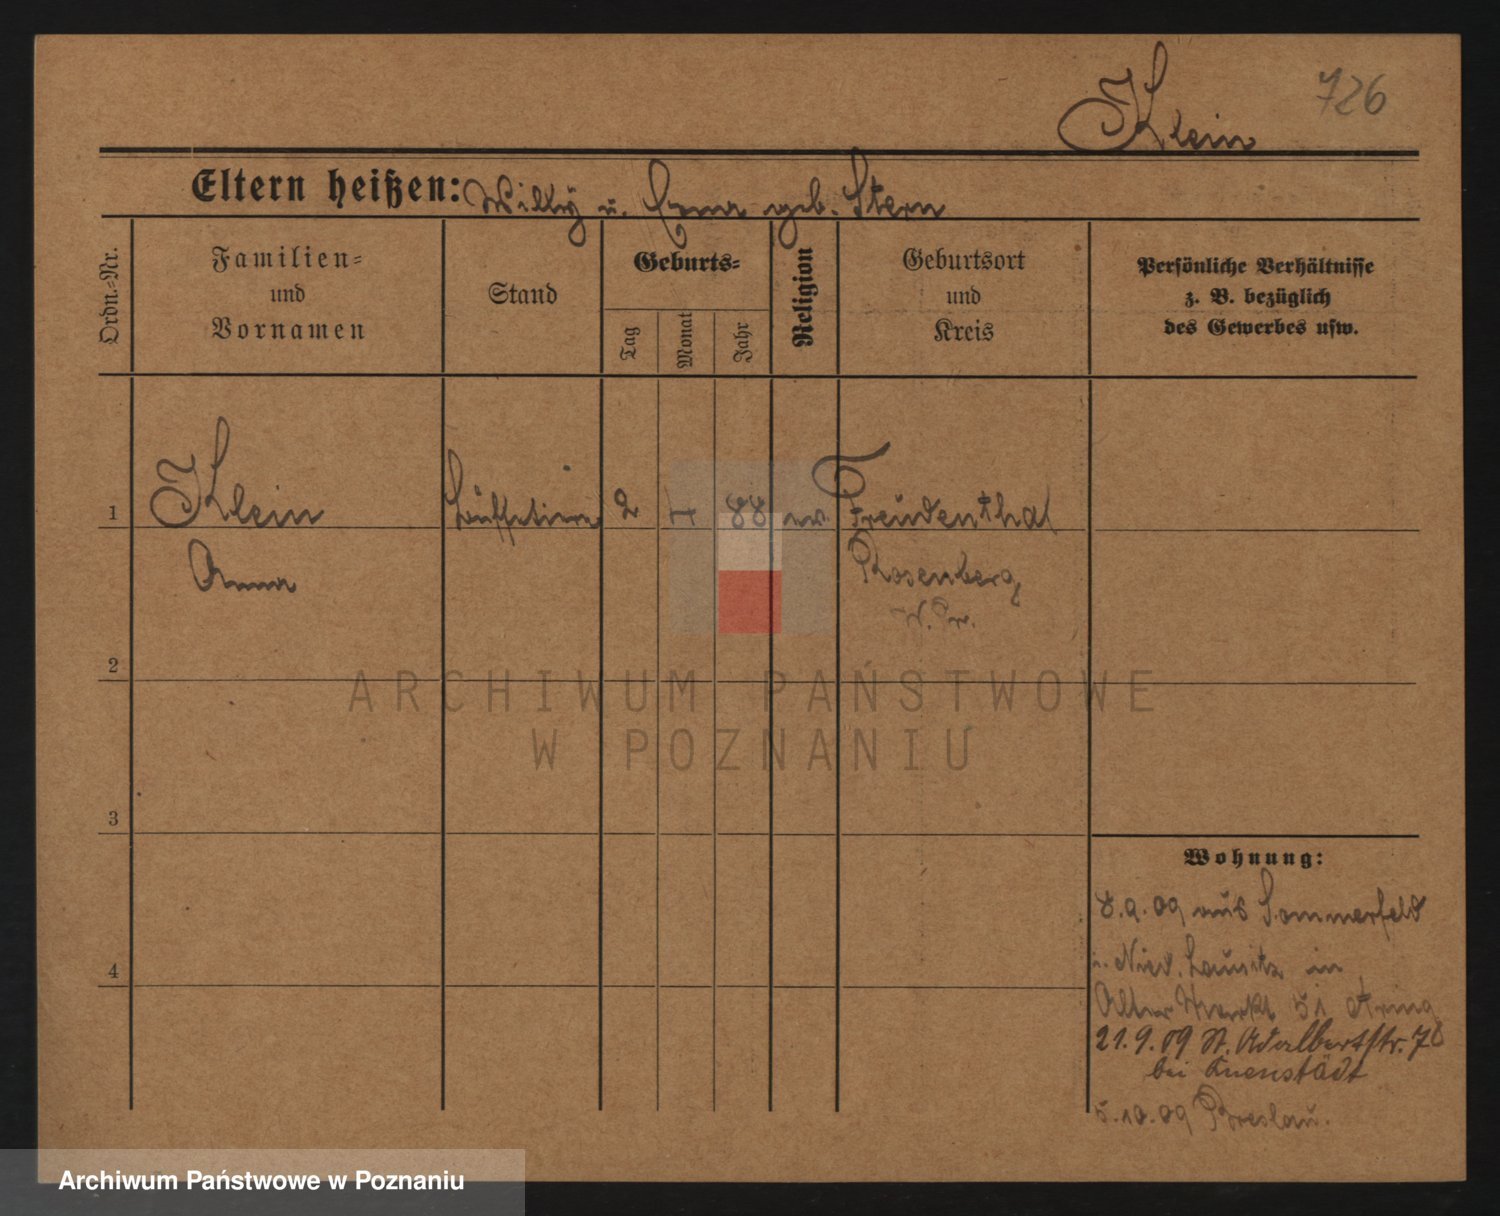 Klein 726
Eltern heißen: Willy u. Erna geb. Stern
Ordn.=Nr.
Familien=
und
Vornamen
Stand
Geburts=
Tag
Monat
Jahr
Religion
Geburtsort
und
Kreis
Persönliche Verhältnisse
z. B. bezüglich
des Gewerbes usw.
1 Klein Büffetiere 2 4 88 ev. Freudenthal
Anna Rosenberg
W. Pr.
2
3
4
Wohnung:
8.9.09 aus Sommerfeld
i. Nied. Lausitz in
Alter Markt 51
21.9.09 St. Adalbertstr. 7
bei
5.10.09 Breslau.
ARCHIWUM PAŃSTWOWE
W POZNANIU
Archiwum Państwowe w Poznaniu